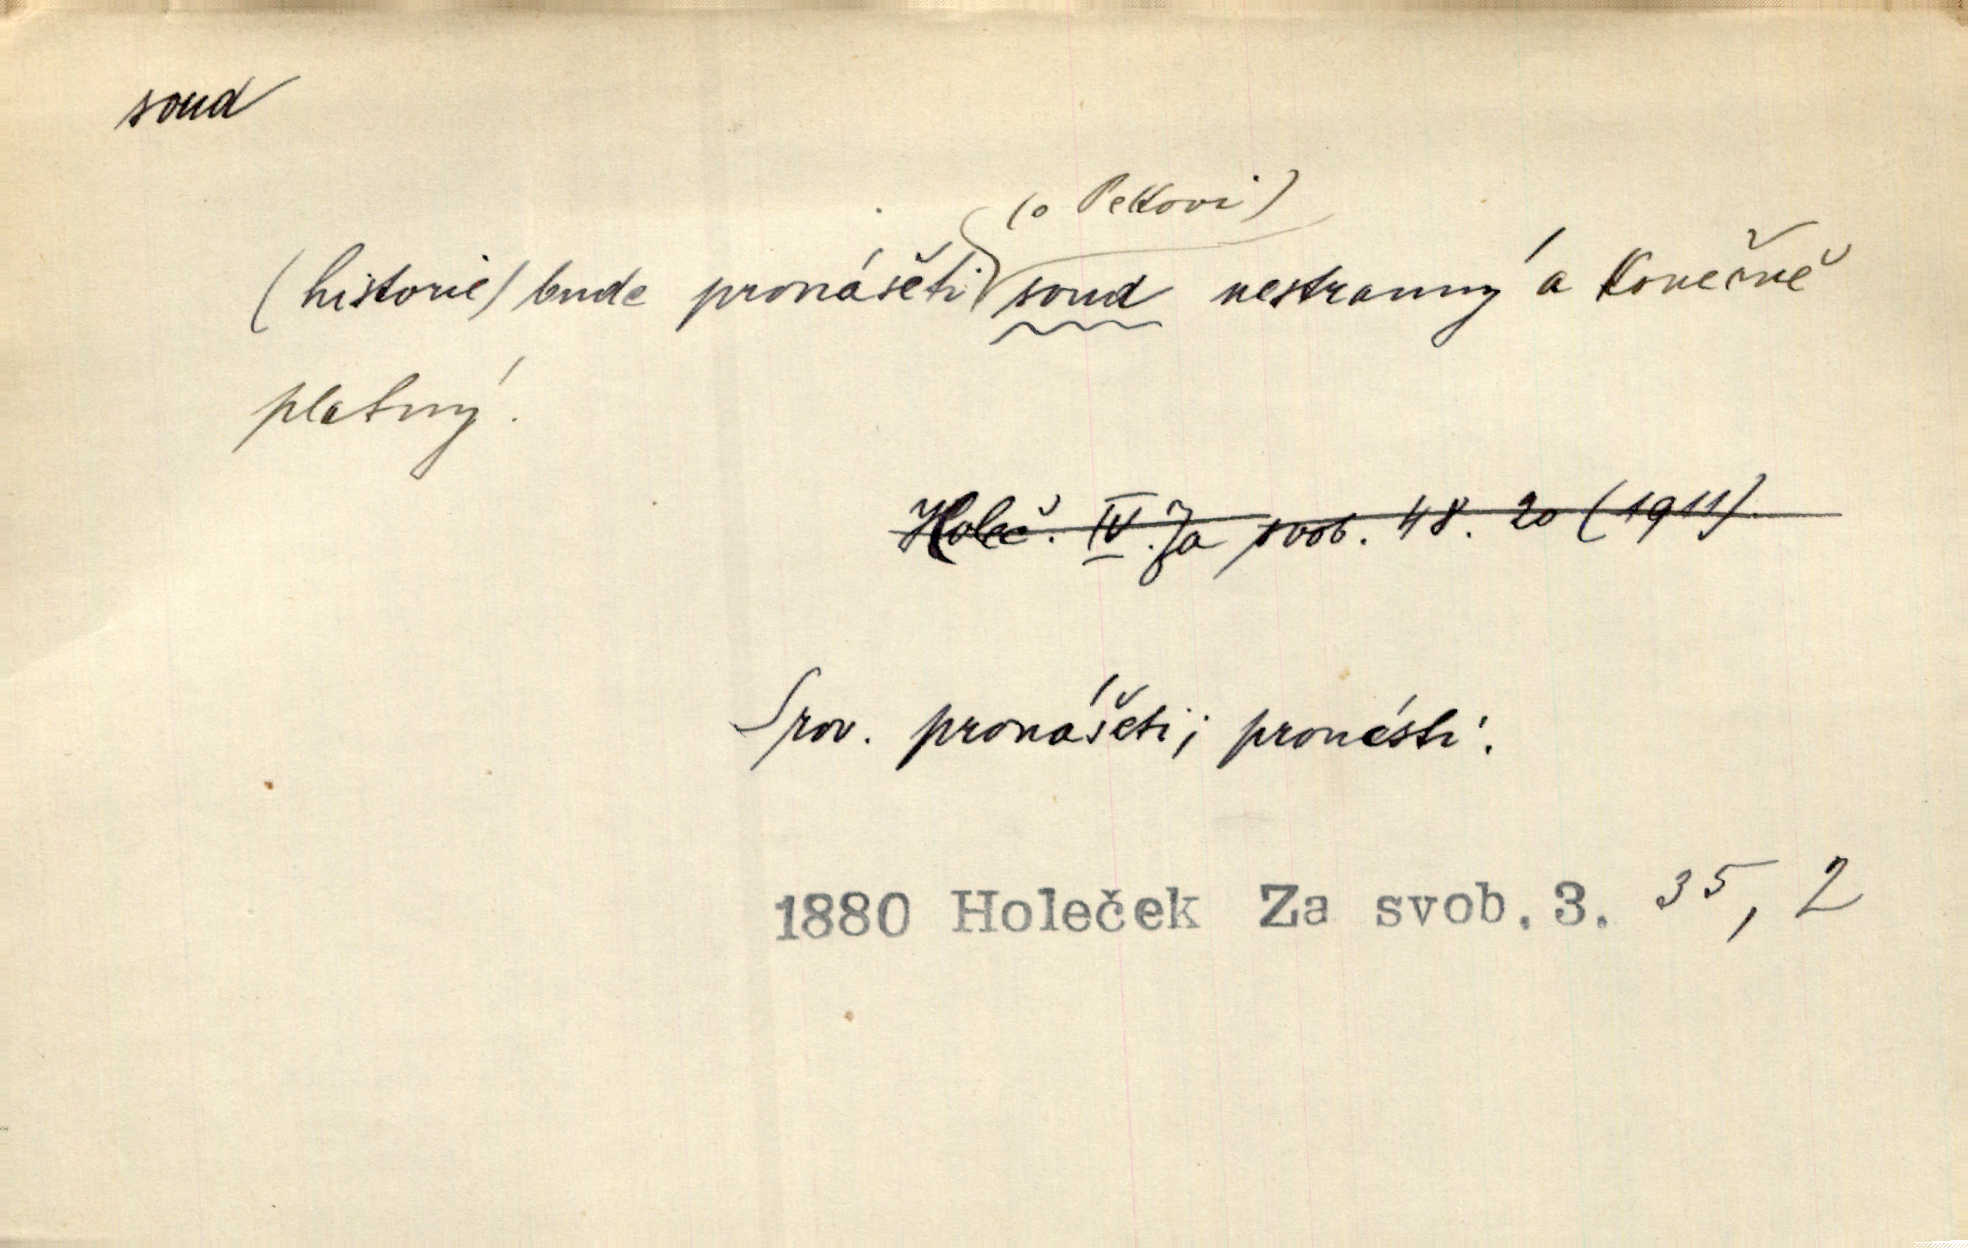 soud
(o Pekovi)
(historie) bude pronášeti soud nestranný a konečně
platný.
Holeč. IV. Za svob. 48. 20 (1911).
Srov. pronášeti; pronésti.
1880 Holeček Za svob. 3. 35, 2